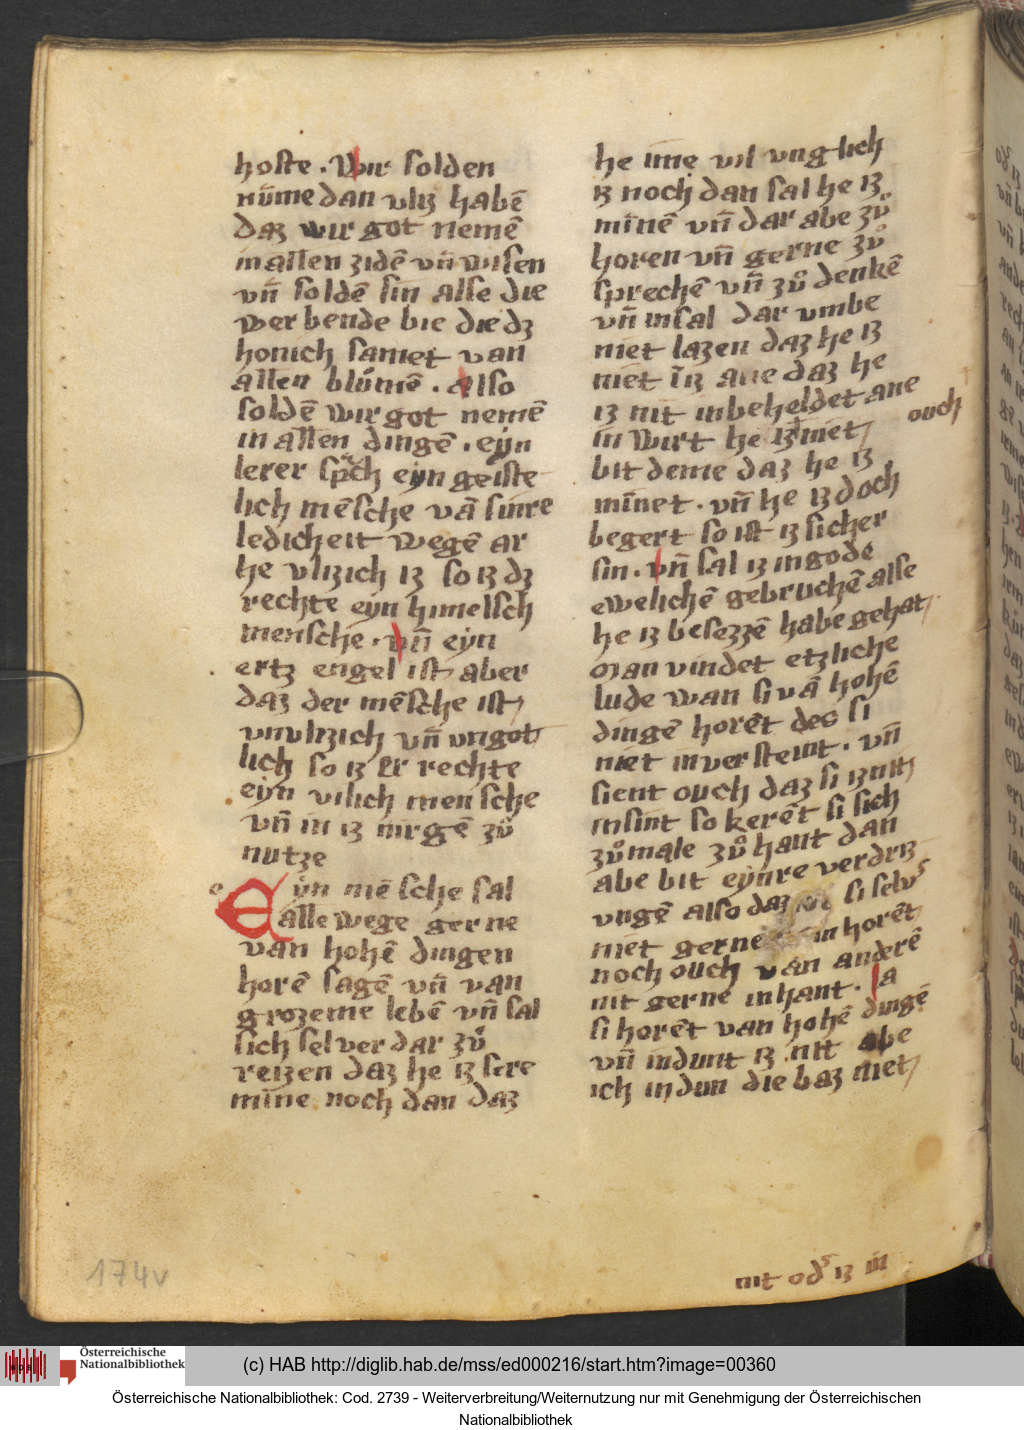 hoste · Wir solden
nv̄me dan vliz habē
daz wir got nemē
in allen zidē vn̄ wisen
vn̄ soldē sin alse die
werbende bie die dz
honich samet van
allen blůmē · also
soldē wir got nemē
in allen dingē · eyn
lerer sp͛ch eyn geiste
lich mēsche vā sinre
ledicheit wegē ar
he vlizich iz so iz dz
rechte eyn himelsch
mensche · vn̄ eyn
ertz engel ist aber
daz der mēsche ist
vnvlizich vn̄ vngot
lich so iz er rechte
eyn vilich mensche
vn̄ in iz nirgē zů
nutze
e Eyn mēsche sal
alle wege gerne
van hohē dingen
horē sagē vn̄ van
grozeme lebē vn̄ sal
sich selver dar zů
reizen daz he iz sere
mīne noch dan daz
he ime vil vnglich
iz noch dan sal he iz
mīnē vn̄ dar abe zů
horen vn̄ gerne zů
sprechē vn̄ zů denkē
vn̄ insal dar vmbe
niet lazen daz he iz
niet īiz ane daz he
iz nit inbeheldet ane
in wirt he iz niet ouch
bit deme daz he iz
mīnet · vn̄ he iz doch
begert so ist iz sicher
sin · vn̄ sal iz in gode
ewelichē gebruchē alse
he iz besezzē habe gehat
Man vindet etzliche
lude wan si vā hohē
dingē horēt des si
niet inversteint · vn̄
sient ouch daz si iz nit
insint so kerēt si sich
zůmale zů hant dan
abe bit eynre verdriz
vngē also daz si selv͛
niet gerne in horēt
noch ouch van anderē
nit gerne inhant · Ja
si horēt van hohē dingē
vn̄ indunt iz nit abe
ich indun die baz niet
nit od͛ iz in
174v
Österreichische
Nationalbibliothek
(c) HAB http://diglib.hab.de/mss/ed000216/start.htm?image=00360
Österreichische Nationalbibliothek: Cod. 2739 - Weiterverbreitung/Weiternutzung nur mit Genehmigung der Österreichischen
Nationalbibliothek